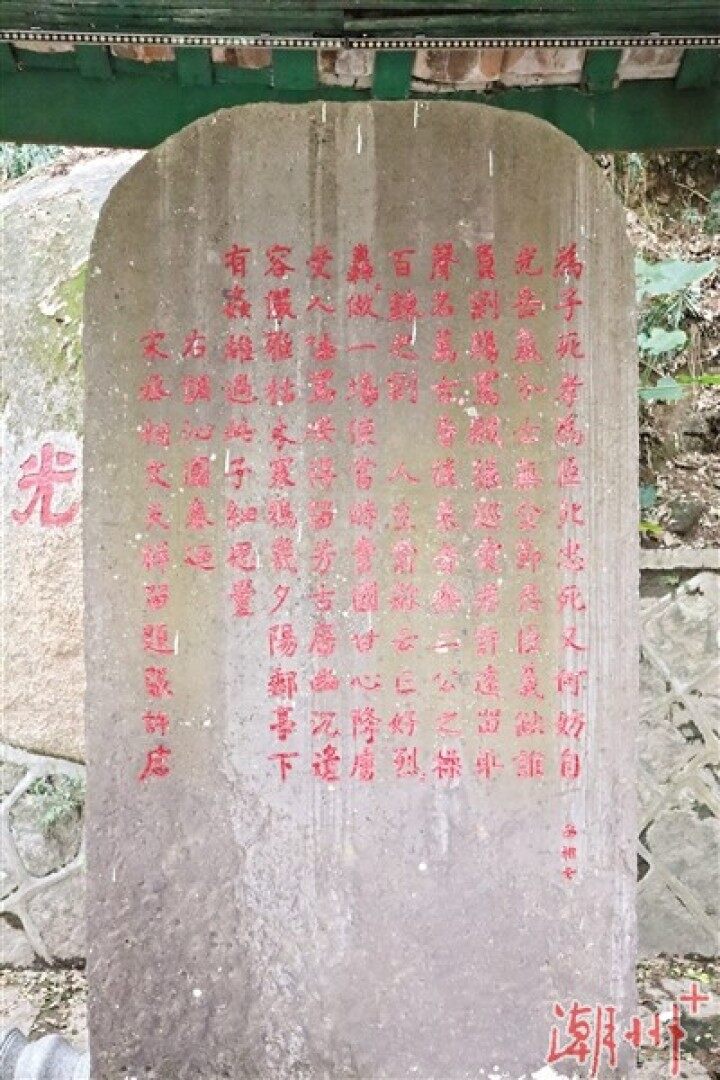 為子死孝為臣死忠死又何妨自
光岳氣分士無全節君臣義缺誰
負剛腸罵賊張巡愛君許遠留取
聲名萬古香後來者無二公之操
百鍊之剛 人生翕歘云亡好烈々
轟々做一場使當時賣國甘心降虜
受人唾罵安得留芳古庿幽沉遺
容儼雅枯木寒鴉幾夕陽郵亭下
有姦雄過此子細思量
右調沁園春
宋丞相文天祥留題張許庿
光
潮州+